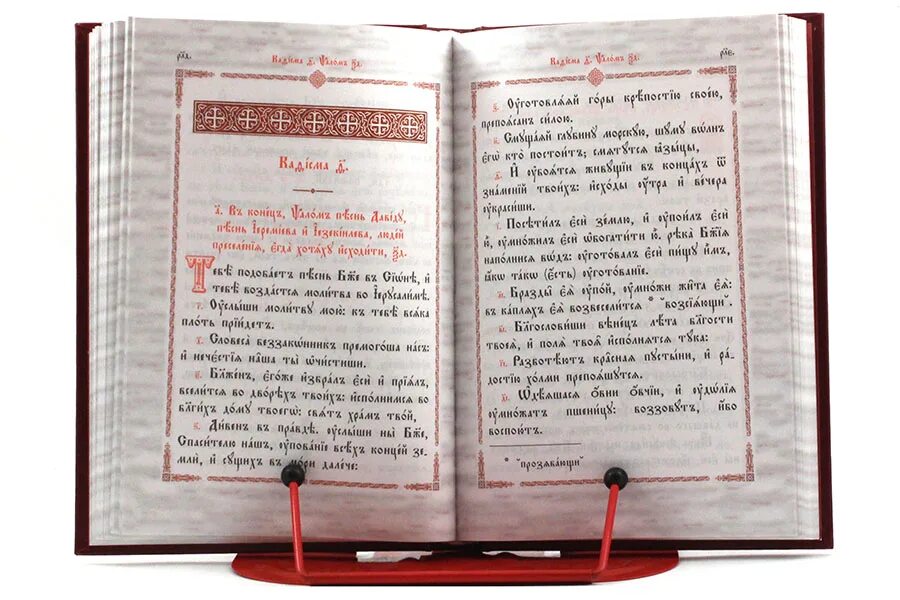 рл҃д.
Каѳі́сма д҃. Ѱало́мъ ѯ҃д.
Каѳі́сма д҃.
а҃. Въ коне́цъ, ѱало́мъ пѣ́снь Даві́ду,
пѣ́снь І҆еремі́ева и҆ І҆езекі́илева, люде́й
преселе́нїѧ, є҆гда̀ хотѧ́хꙋ и҆сходи́ти, ѯ҃д.
Тебѣ̀ подоба́етъ пѣ́снь Бж҃е въ Сїѡ́нѣ, и҆
тебѣ̀ возда́стсѧ моли́тва во І҆ерⷭ҇али́мѣ.
г҃. Оу҆слы́ши моли́твꙋ мою̀: къ тебѣ̀ всѧ́ка
пло́ть прїи́детъ.
Словеса̀ беззако́нникъ премого́ша на́съ:
и҆ нече́стїѧ на́ша ты̀ ѡ҆чи́стиши.
Бл҃же́нъ, є҆го́же и҆збра́лъ є҆сѝ и҆ прїѧ́лъ,
всели́тсѧ во дво́рѣхъ твои́хъ: и҆спо́лнимсѧ во
бл҃ги́хъ до́мꙋ твоегѡ̀: свѧ́тъ хра́мъ тво́й,
Ди́венъ въ пра́вдѣ. оу҆слы́ши ны̀ Бж҃е,
Спаси́телю на́шъ, оу҆пова́нїе всѣ́хъ конце́й зе-
млѝ, и҆ сꙋ́щихъ въ мо́ри дале́че:
Каѳі́сма д҃. Ѱало́мъ ѯ҃д.
рл҃е.
з҃. Оу҆готовлѧ́ѧй го́ры крѣ́постїю свое́ю,
препоѧ́санъ си́лою.
Смꙋща́ѧй глꙋбинꙋ̀ морскꙋ́ю, шꙋ́мꙋ во́лнъ
є҆гѡ̀ кто̀ постои́тъ; смѧтꙋ́тсѧ ꙗ҆зы́цы,
И҆ оу҆боѧ́тсѧ живꙋ́щїи въ конца́хъ ѿ
зна́менїй твои́хъ: и҆схо́ды оу҆́тра и҆ ве́чера
оу҆краси́ши.
І҃. Посѣти́лъ є҆сѝ зе́млю, и҆ оу҆пои́лъ є҆сѝ
ю҆̀, оу҆мно́жилъ є҆сѝ ѡ҆богати́ти ю҆̀. рѣка̀ Бж҃їѧ
напо́лнисѧ во́дъ: оу҆гото́валъ є҆сѝ пи́щꙋ и҆̀мъ,
ꙗ҆́кѡ та́кѡ (є҆́сть) оу҆гото́ванїе.
Бразды̑ є҆ѧ̀ оу҆по́й, оу҆мно́жи жи̑та є҆ѧ̀:
въ ка́плѧхъ є҆ѧ̀ возвесели́тсѧ * "возсїѧ́ющи".
Бл҃гослови́ши вѣне́цъ лѣ́та бл҃гости
твоеѧ̀, и҆ полѧ̀ твоѧ̑ и҆спо́лнѧтсѧ тꙋ́ка:
Разботѣ́ютъ кра̑снаѧ пꙋсты́ни, и҆ ра́-
достїю хо́лми препоѧ́шꙋтсѧ.
Ѡ҆дѣ́ѧшасѧ ѻ҆внѝ ѻ҆́вчїи, и҆ оу҆дѡ́лїѧ
оу҆мно́жатъ пшени́цꙋ: воззовꙋ́тъ, и҆́бо
воспою́тъ.
* "прозѧба́ющи"